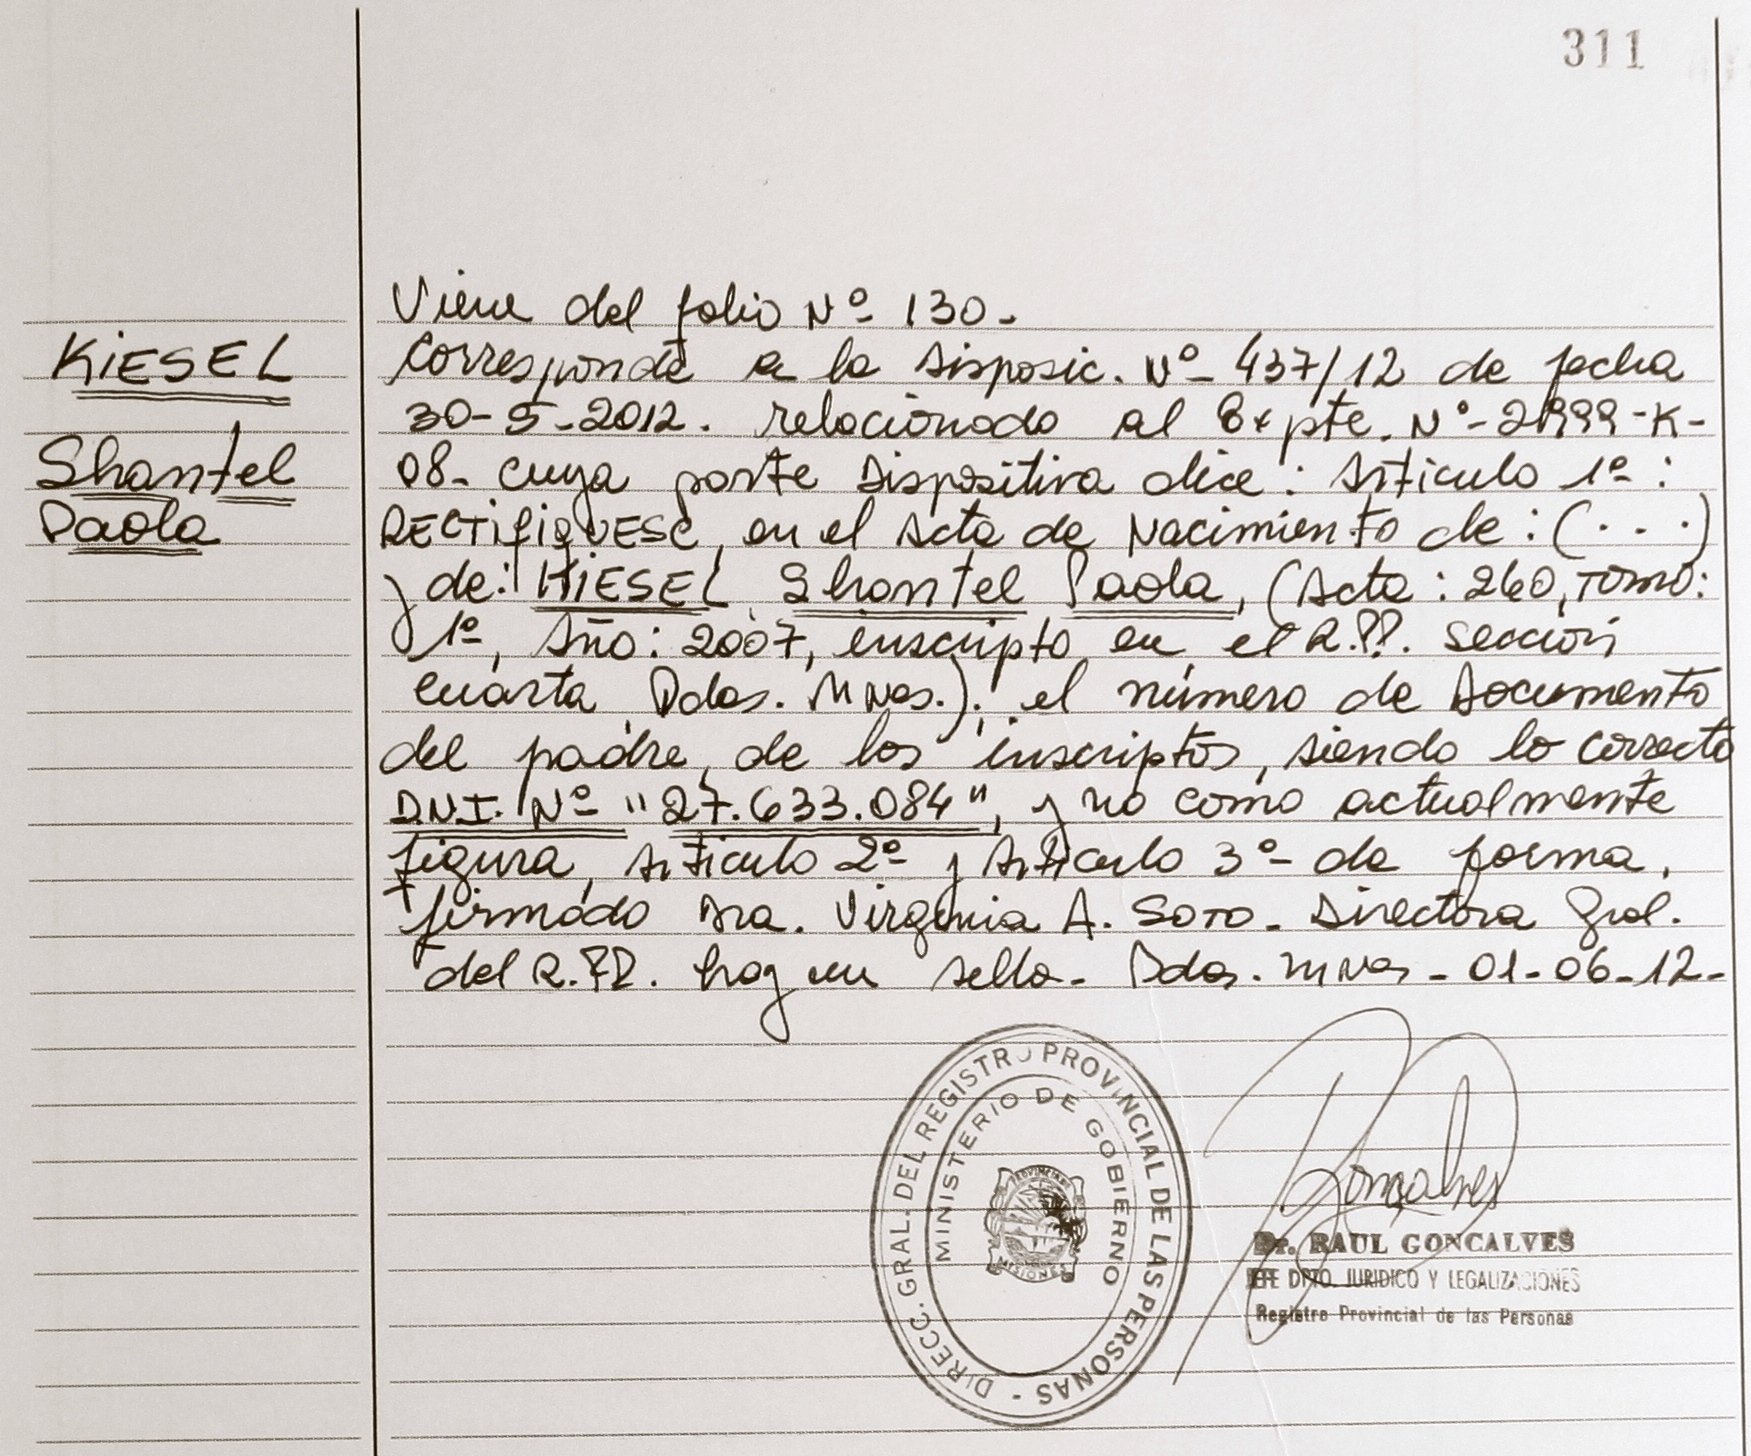 311
KiESEL
Shantel
Paola
Viene del folio Nº 130-
Corresponde a la Disposic. Nº- 437/12 de fecha
30-5-2012. relacionado al Expte. Nº-2999-K-
08- cuya parte Dispositiva dice: Articulo 1º:
RECTIFIQUESE, en el Acta de Nacimiento de: (...)
y de: KIESEL Shantel Paola, (Acta: 260, TOMO:
1º, Año: 2007, inscripto en el R.PP. sección
cuarta Pdas. MNes.); el número de Documento
del padre, de los inscriptos, siendo lo correcto
D.N.I. Nº "27.633.084", y no como actualmente
figura, Articulo 2º y Articulo 3º de forma,
firmado Dra. Virginia A. SOTO- Directora Gral.
del R.PP. hay un sello- Pdas. MNes- 01-06-12-
DIRECC. GRAL. DEL REGISTRO PROVINCIAL DE LAS PERSONAS -
MINISTERIO DE GOBIERNO
MISIONES
Goncalves
Dr. RAUL GONCALVES
JEFE DPTO. JURIDICO Y LEGALIZACIONES
Registro Provincial de las Personas